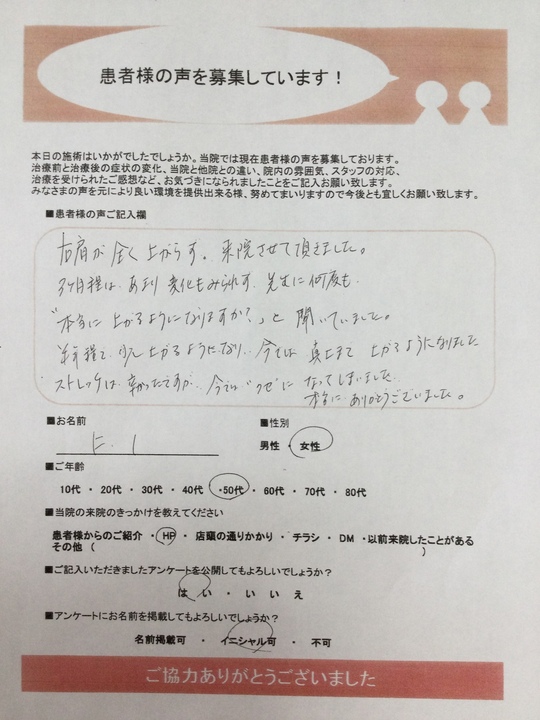 患者様の声を募集しています！
本日の施術はいかがでしたでしょうか。当院では現在患者様の声を募集しております。
治療前と治療後の症状の変化、当院と他院との違い、院内の雰囲気、スタッフの対応、
治療を受けられたご感想など、お気づきになられましたことをご記入お願い致します。
みなさまの声を元により良い環境を提供出来る様、努めてまいりますので今後とも宜しくお願い致します。
■患者様の声ご記入欄
右肩が全く上がらず。来院させて頂きました。
3ヶ月程は、あまり変化もみられず、先生に何度も
"本当に上がるようになりますか?"と聞いていました。
半年程で、少し上がるようになり、今では真上まで上がるようになりました
ストレッチは、辛かったですが、今では"クセ"になってしまいました。
本当にありがとうございました。
■お名前
■性別
男性・女性
■ご年齢
10代・20代・30代・40代・50代・60代・70代・80代
■当院の来院のきっかけを教えてください
患者様からのご紹介・HP・店頭の通りかかり・チラシ・DM・以前来院したことがある
その他（ ）
■ご記入いただきましたアンケートを公開してもよろしいでしょうか？
はい・いいえ
■アンケートにお名前を掲載してもよろしいでしょうか？
名前掲載可・イニシャル可・不可
ご協力ありがとうございました